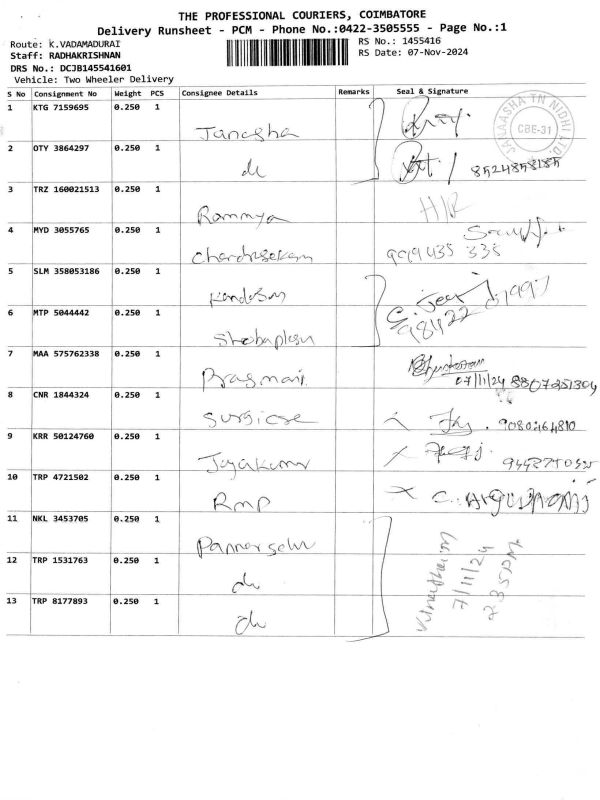 THE PROFESSIONAL COURIERS, COIMBATORE
Delivery Runsheet - PCM - Phone No.:0422-3505555 - Page No.:1
Route: K.VADAMADURAI
RS No.: 1455416
Staff: RADHAKRISHNAN
RS Date: 07-Nov-2024
DRS No.: DCJB145541601
Vehicle: Two Wheeler Delivery
S No Consignment No Weight PCS Consignee Details Remarks Seal & Signature
1 KTG 7159695 0.250 1
JANAASHA TN NIDHI LTD.
CBE-31
2 OTY 3864297 0.250 1
8524858185
3 TRZ 160021513 0.250 1 Rammya
4 MYD 3055765 0.250 1 Chandrasekaran
999435 335
5 SLM 358053186 0.250 1
98422 01997
6 MTP 5044442 0.250 1
7 MAA 575762338 0.250 1
07/11/24
8 CNR 1844324 0.250 1
9080464810
9 KRR 50124760 0.250 1 Jayakumar
10 TRP 4721502 0.250 1 RMP
11 NKL 3453705 0.250 1
12 TRP 1531763 0.250 1
7/11/24
2.35 PM
13 TRP 8177893 0.250 1